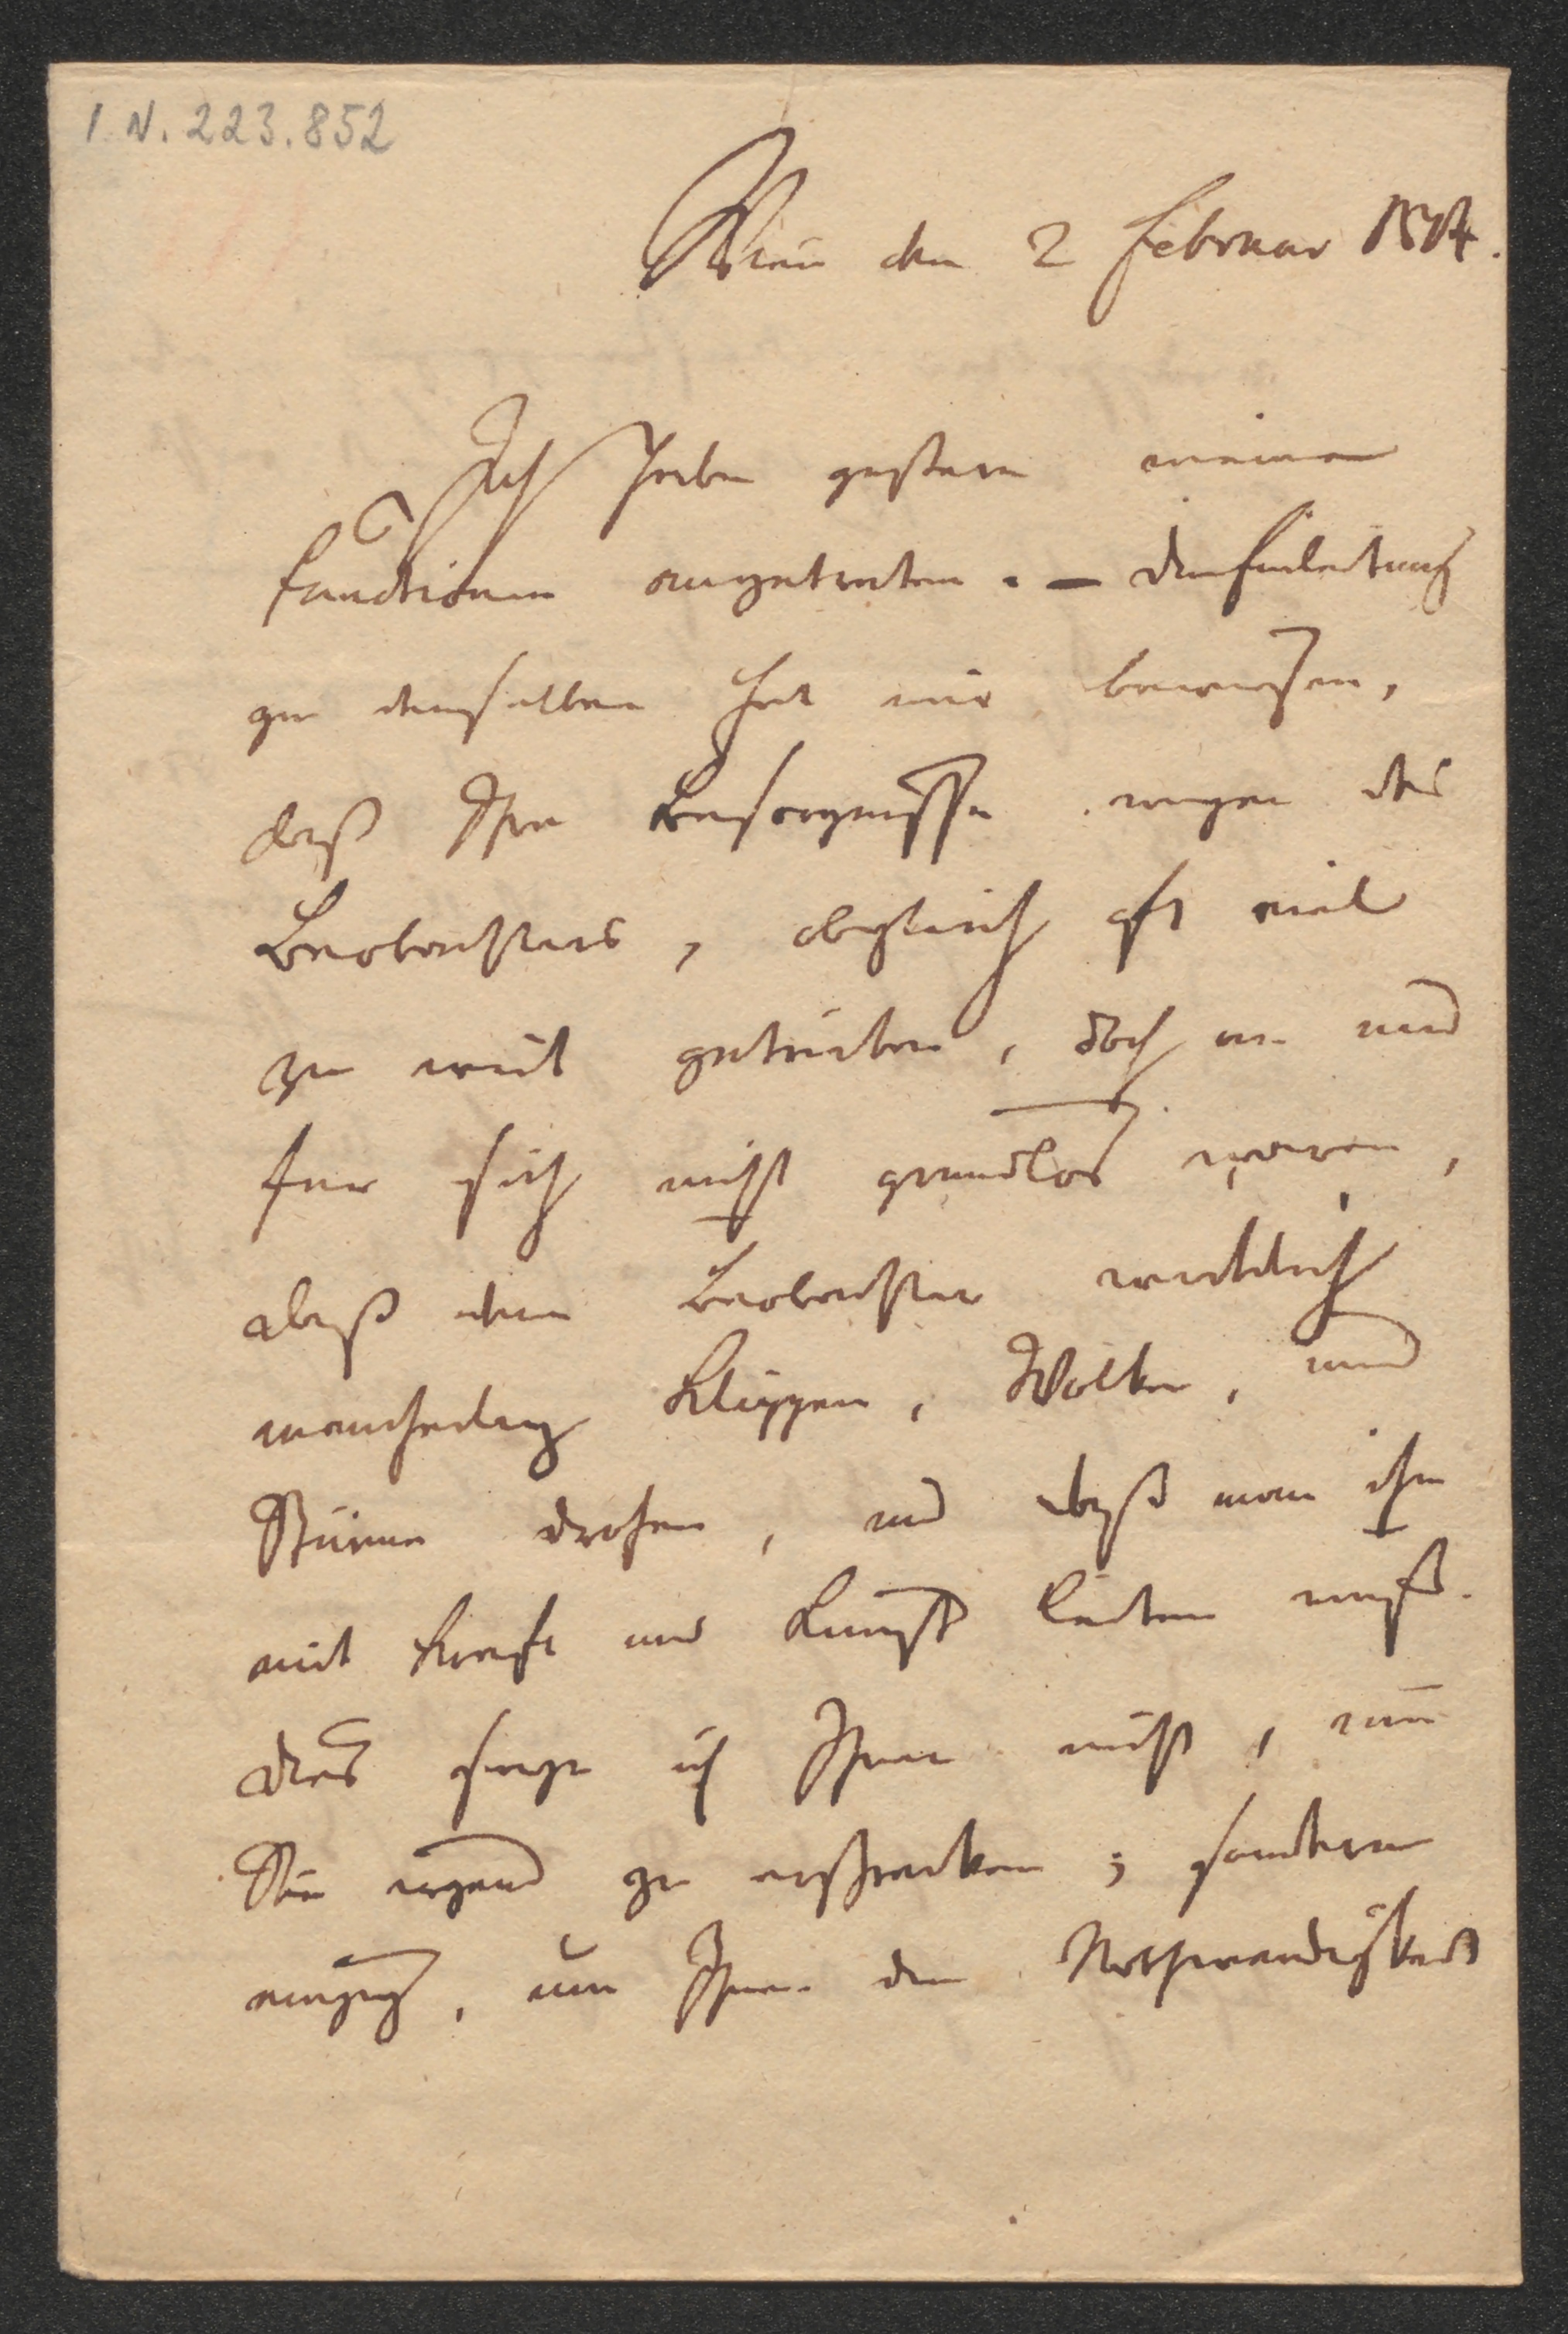 I. N. 223.852
Wien den 2 Februar 1814.
Ich habe gestern meine
Functionen angetreten. — Die Einleitung
zu denselben hat mir bewiesen,
daß Ihre Besorgnisse wegen des
Beobachters, obgleich oft viel
zu weit getrieben, doch an und
für sich nicht grundlos waren,
daß dem Beobachter wirklich
mancherley Klippen, Wolken, und
Stürme drohen, und daß man ihn
mit Kraft und Kunst leiten muß.
Dies sage ich Ihnen nicht, um
Sie irgend zu erschrecken; sondern
einzig, um Ihnen die Nothwendigkeit